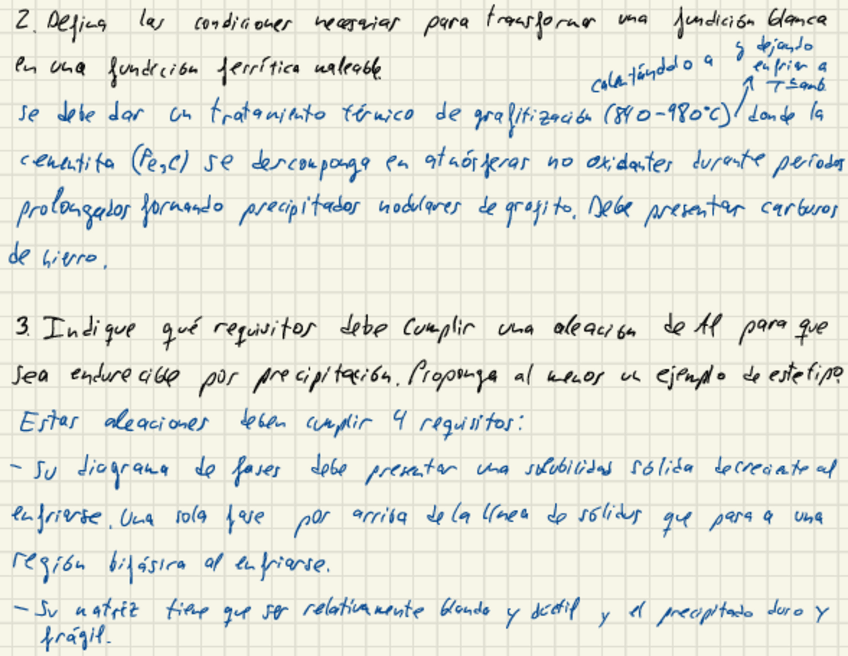 2. Defina las condiciones necesarias para transformar una fundición blanca
en una fundición ferrítica maleable.
calentándolo a y dejando
enfriar a
T=amb.
se debe dar un tratamiento térmico de grafitización (840-980°C) donde la
cementita (Fe3C) se descomponga en atmósferas no oxidantes durante periodos
prolongados formando precipitados nodulares de grafito. Debe presentar carburos
de hierro.
3. Indique qué requisitos debe cumplir una aleación de Al para que
sea endurecible por precipitación. Proponga al menos un ejemplo de este tipo.
Estas aleaciones deben cumplir 4 requisitos:
- Su diagrama de fases debe presentar una solubilidad sólida decreciente al
enfriarse. Una sola fase por arriba de la línea de sólidus que para a una
región bifásica al enfriarse.
- Su matriz tiene que ser relativamente blanda y dúctil y el precipitado duro y
frágil.